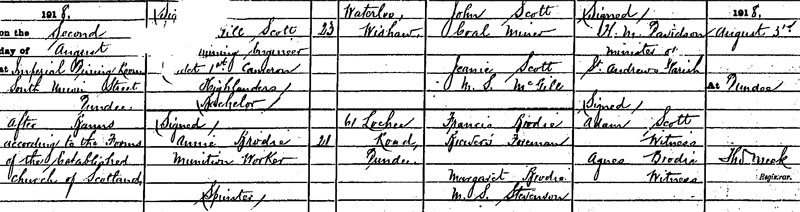 1918.
on the Second
day of August
at Imperial Dining Rooms
South Union Street
Dundee
After Banns
according to the Forms
of the Established
Church of Scotland,
Gill Scott
Mining Engineer
1st Cameron
Highlanders)
(Bachelor)
(Signed)
Annie Brodie
Munition Worker
(Spinster)
23
21
Waterloo,
Wishaw
61 Lochee
Road,
Dundee
John Scott
Coal Miner
Jeanie Scott
M. S. McGill
Francis Brodie
Brewer's Foreman
Margaret Brodie
M. S. Stevenson
(Signed)
H. M. Davidson
Minister of
St. Andrews Parish
(Signed)
Adam Scott
Witness
Agnes Brodie
Witness
1918.
August 3rd
At Dundee
Thos Meek
Registrar.